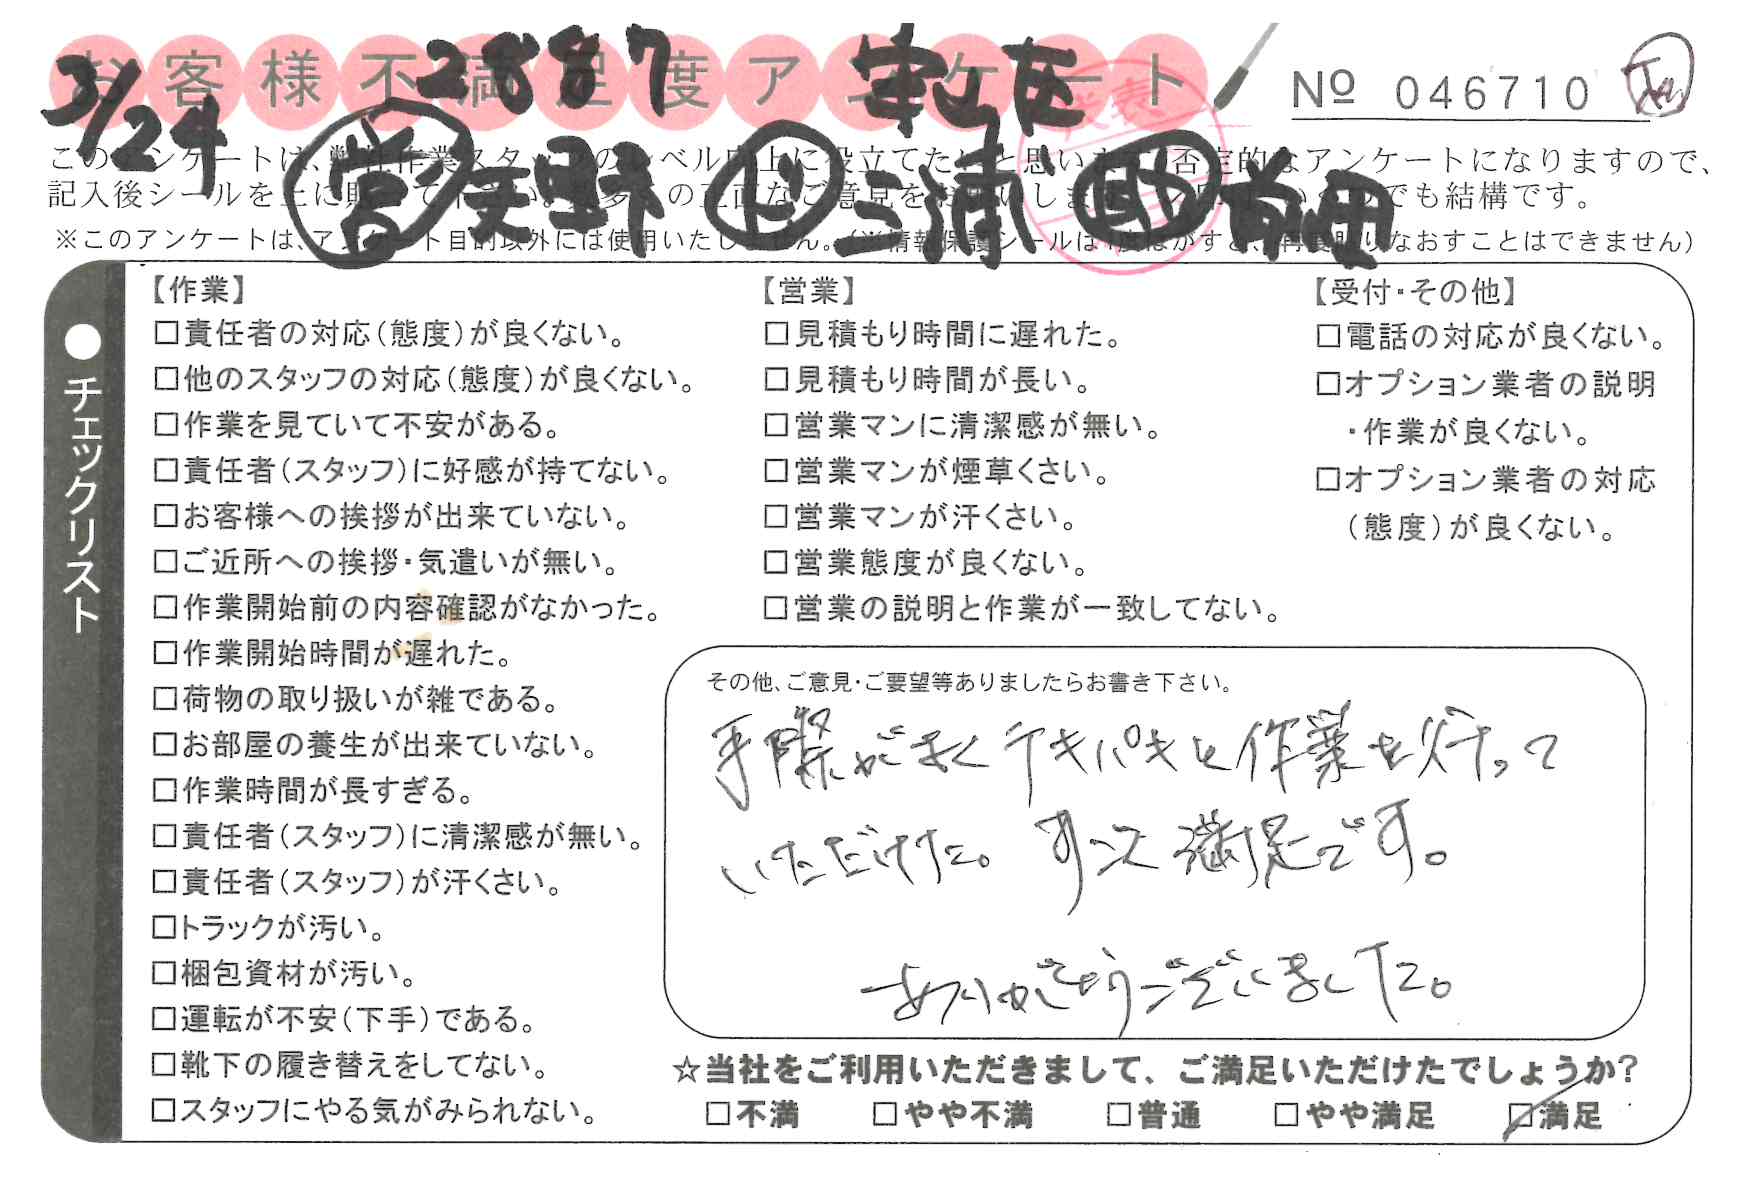 お客様不満足度アンケート
№ 046710
3/24 2887
営 天野 上 三浦 助 前田
このアンケートは、弊社作業スタッフのレベル向上に役立てたいと思います。否定的なアンケートになりますので、
記入後シールを上に貼って下さい。数多くの正直なご意見をお願いします。
※このアンケートは、アンケート目的以外には使用いたしません。(※情報保護シールは1度はがすと、再度貼りなおすことはできません)
●チェックリスト
【作業】
□責任者の対応(態度)が良くない。
□他のスタッフの対応(態度)が良くない。
□作業を見ていて不安がある。
□責任者(スタッフ)に好感が持てない。
□お客様への挨拶が出来ていない。
□ご近所への挨拶・気遣いが無い。
□作業開始前の内容確認がなかった。
□作業開始時間が遅れた。
□荷物の取り扱いが雑である。
□お部屋の養生が出来ていない。
□作業時間が長すぎる。
□責任者(スタッフ)に清潔感が無い。
□責任者(スタッフ)が汗くさい。
□トラックが汚い。
□梱包資材が汚い。
□運転が不安(下手)である。
□靴下の履き替えをしてない。
□スタッフにやる気がみられない。
【営業】
□見積もり時間に遅れた。
□見積もり時間が長い。
□営業マンに清潔感が無い。
□営業マンが煙草くさい。
□営業マンが汗くさい。
□営業態度が良くない。
□営業の説明と作業が一致してない。
【受付・その他】
□電話の対応が良くない。
□オプション業者の説明
・作業が良くない。
□オプション業者の対応
(態度)が良くない。
その他、ご意見・ご要望等ありましたらお書き下さい。
手際がよくテキパキと作業を行って
いただけた。すごく満足です。
ありがとうございました。
☆当社をご利用いただきまして、ご満足いただけたでしょうか?
□不満 □やや不満 □普通 □やや満足 □満足